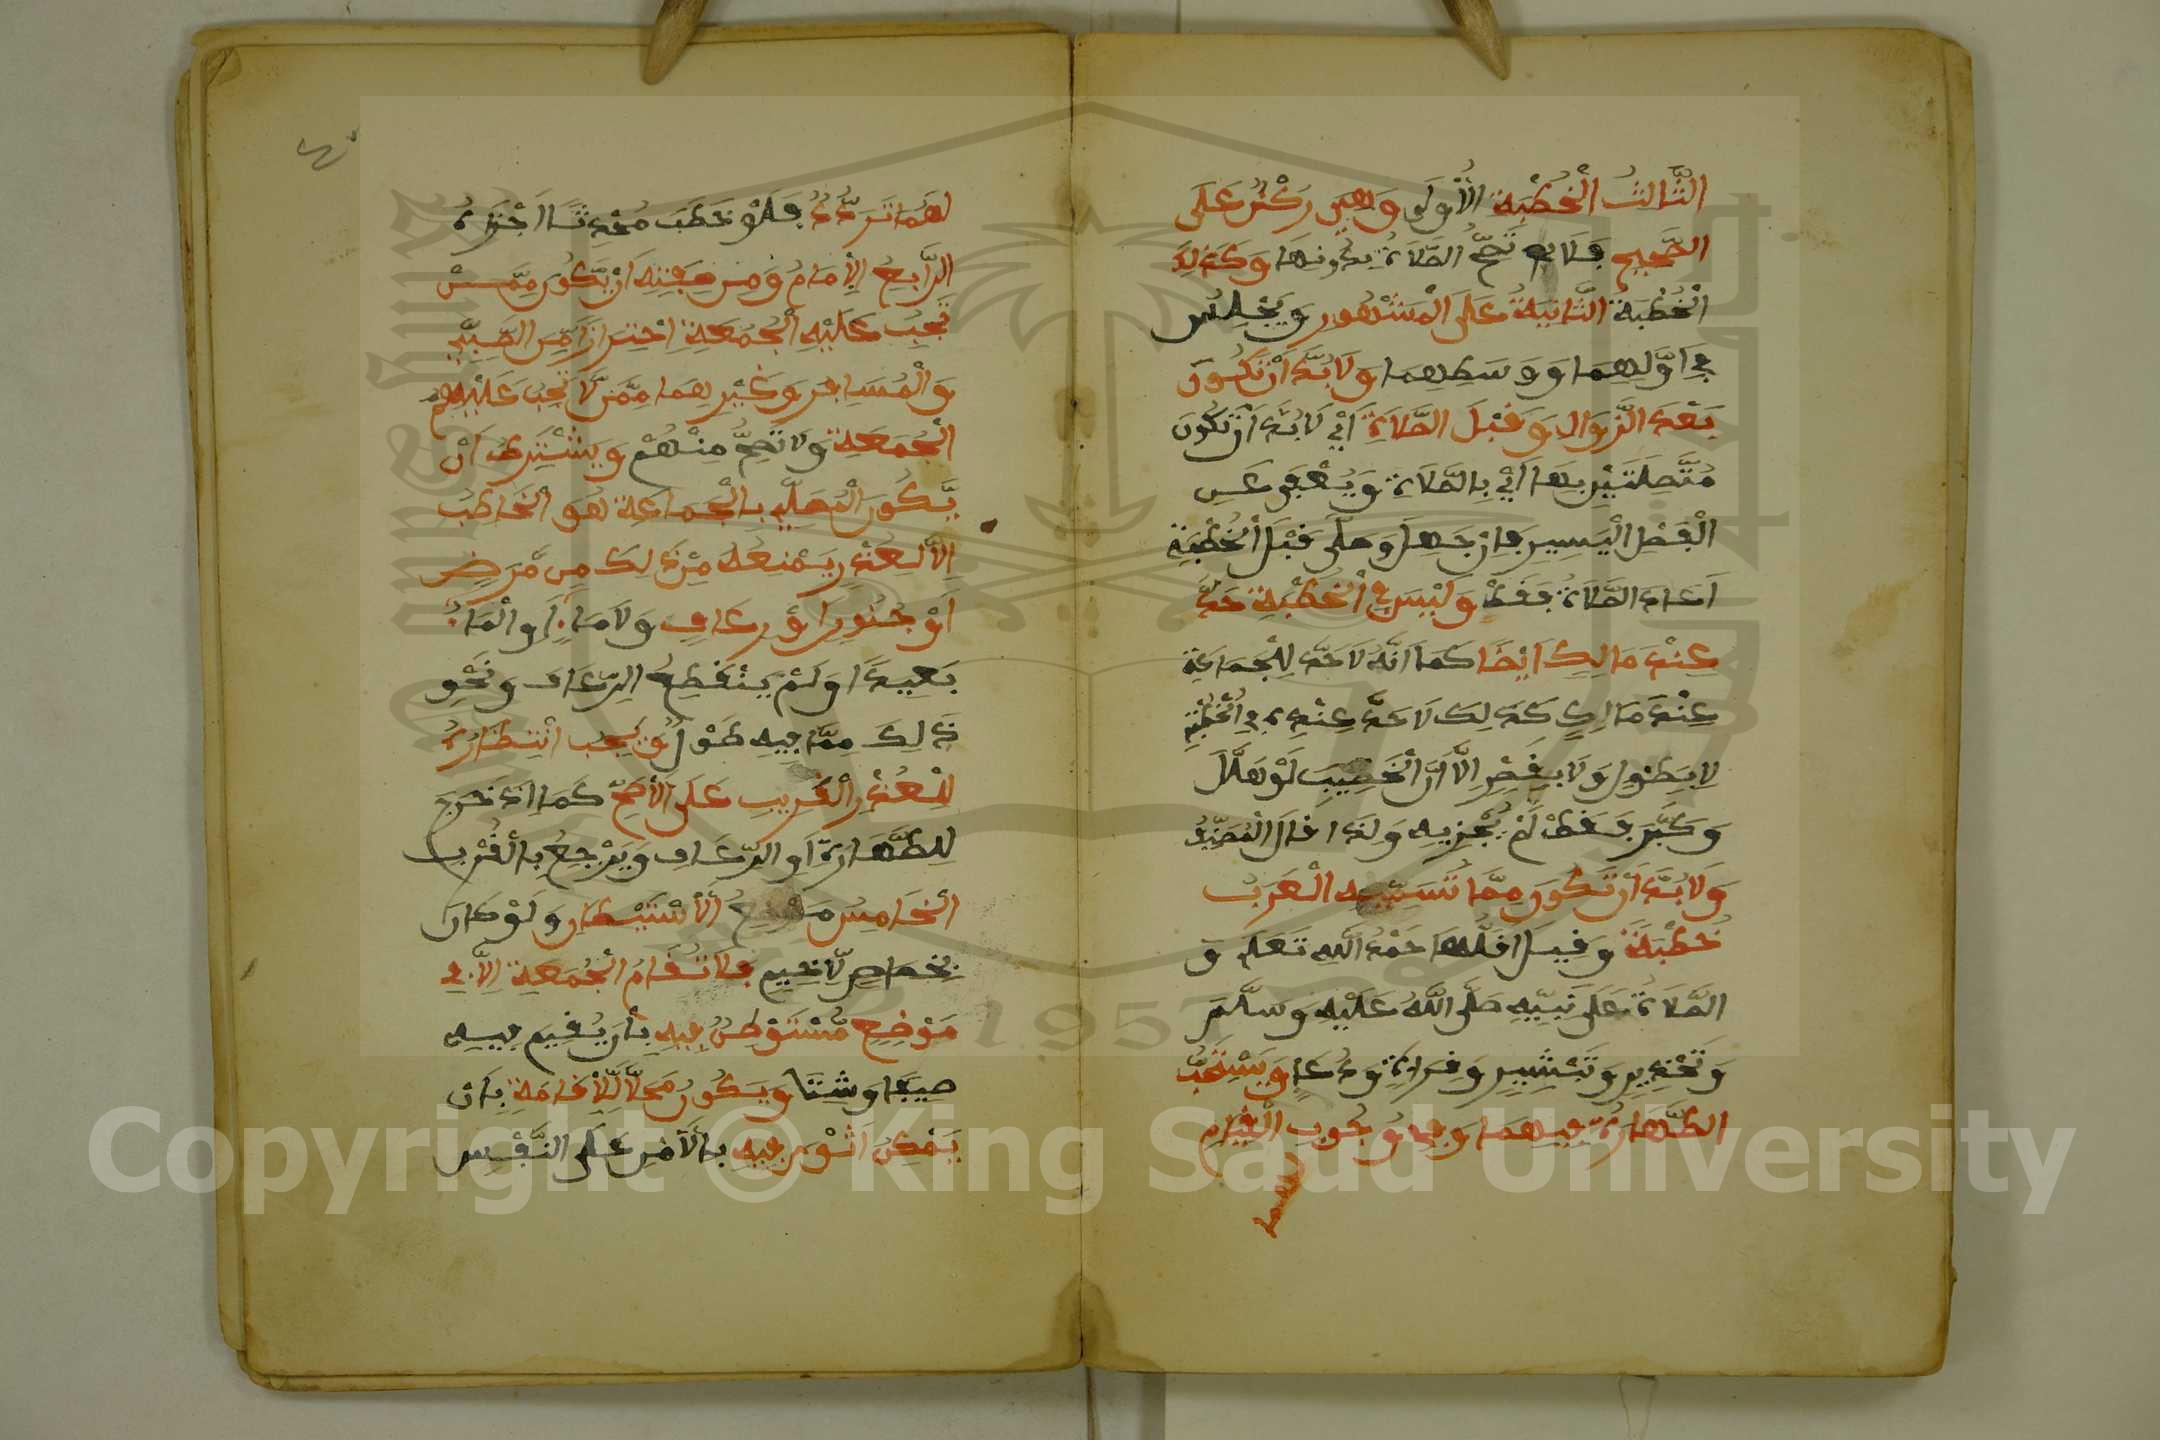 الثَّالِثُ الْخُطْبَة الأُولَى وَهِيَ رُكْنٌ عَلَى
الصَّحِيحِ فَلَا تَصِحُّ الصَّلَاةُ بِدُونِهَا وَكَذَلِكَ
الْخُطْبَةُ الثَّانِيَةُ عَلَى الْمَشْهُورِ وَيَجْلِسُ
فِي أَوَّلِهِمَا وَوَسَطِهِمَا وَلَا بُدَّ أَنْ تَكُونَ
بَعْدَ الزَّوَالِ وَقَبْلَ الصَّلَاةِ أَيْ لَا بُدَّ أَنْ تَكُونَ
مُتَّصِلَتَيْنِ بِهَا أَيْ بِالصَّلَاةِ وَيُعْفَى عَنِ
الْفَصْلِ الْيَسِيرِ فَإِنْ جَهِلَ وَصَلَّى قَبْلَ الْخُطْبَةِ
أَعَادَ الصَّلَاةَ فَقَطْ وَلَيْسَ فِي الْخُطْبَةِ حَدٌّ
عِنْدَ مَالِكٍ أَيْضًا كَمَا أَنَّهُ لَا حَدَّ لِلْجَمَاعَةِ
عِنْدَ مَالِكٍ كَذَلِكَ لَا حَدَّ عِنْدَهُ فِي الْخُطْبَةِ
لَا بِطُولٍ وَلَا بِقِصَرٍ إِلَّا أَنَّ الْخَطِيبَ لَوْ هَلَّلَ
وَكَبَّرَ فَقَطْ لَمْ يُجْزِيهِ وَلِذَا قَالَ الْمُصَنِّفُ
وَلَا بُدَّ أَنْ تَكُونَ مِمَّا تُسَمِّيهِ الْعَرَبُ
خُطْبَةً وَقِيلَ أَقَلُّهَا حَمْدُ اللهِ تَعَلَى وَ
الصَّلَاةُ عَلَى نَبِيِّهِ صَلَّى اللَّهُ عَلَيْهِ وَسَلَّمَ
وَتَحْذِيرٍ وَتَبْشِيرٍ وَقِرَاءَةٍ وَدُعَاءٍ وَيُسْتَحَبُّ
الطَّهَارَةُ فِيهِمَا وَفِي وُجُوبِ الْقِيَامِ
لهما
لَهُمَا تَرَدُّدٌ فَلَوْ خَطَبَ مُحْدِثًا أَجْزَأَهُ
الرَّابِعُ الإِمَامُ وَمِنْ صِفَتِهِ أَنْ يَّكُونَ مِمَّنْ
تَجِبُ عَلَيْهِ الْجُمُعَةِ احْتِرَازًا مِّنَ الصَّبِيِّ
وَالْمُسَافِرِ وَغَيْرِهِمَا مِمَّن لَّا تَجِبُ عَلَيْهِمُ
الْجُمُعَة وَلَا تَصِحُّ مِنْهُمْ وَيُشْتَرَطُ أَنْ
يَّكُونَ الْمُصَلِّي بِالْجَمَاعَة هُوَ الْخَاطِبُ
إِلَّا لِعُذْرٍ يَمْنَعُهُ مِنْ ذَلِكَ مِن مَّرَضٍ
أَوْ جُنُونٍ أَوْ رُعَافٍ وَلَا مَاءَ أَوِ الْمَاءُ
بَعِيدًا وَلَمْ يَنْقَطِعِ الرُّعَافُ وَنَحْوِ
ذَلِكَ مِمَّا فِيهِ طَوْلٌ وَيَجِبُ انْتِظَارُهُ
لِلْعُذْرِ الْقَرِيبِ عَلَى الأَصَحِّ كَمَا إِذَ خَرَجَ
لِلطَّهَارَةِ أَوِ الرُّعَافِ وَيَرْجِعُ بِالْقُرْبِ
الْخَامِسُ مَوْضِعُ الأَسْتِيطَانِ وَلَوْ كَانَ
بِخِصَاصٍ لَّا خِيَمٍ فَلَا تُقَامُ الْجُمُعَة إِلَّا فِي
مَوْضِعٍ مُسْتَوْطَنٍ فِيهِ بِأَنْ يُقِيمَ فِيهِ
صَيْفًا وَشِتَا وَيَكُونُ مَحَلًّا لِّلْأِقَامَةِ بِأَنْ
يُمْكِنُ الثَّوَى فِيهِ بِالْأَمْنِ عَلَى النَّفْسِ
1957
Copyright © King Saud University